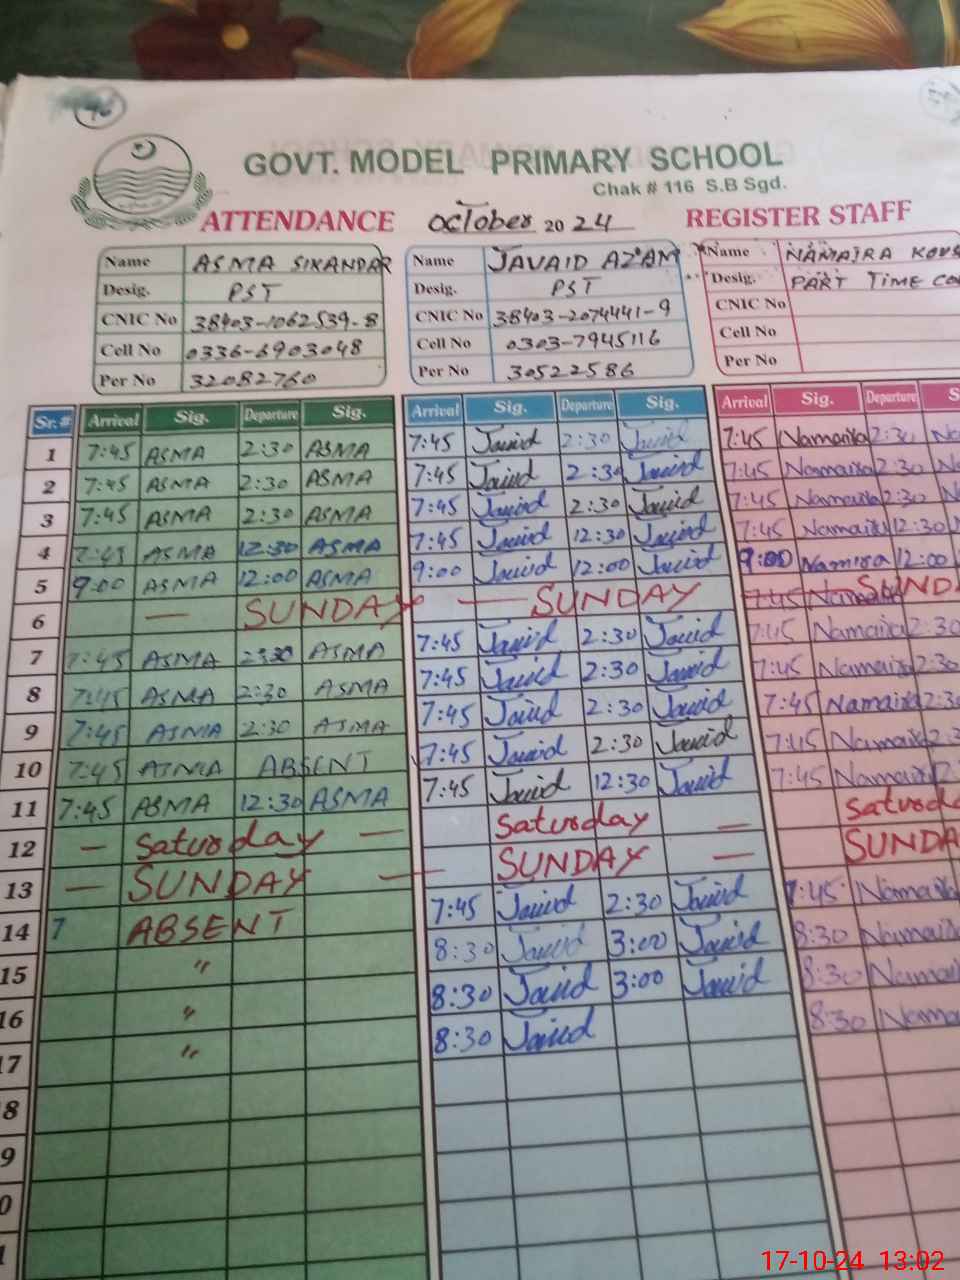 GOVT. MODEL PRIMARY SCHOOL
Chak # 116 S.B Sgd.
ATTENDANCE October 2024 REGISTER STAFF
Name ASMA SIKANDAR Name JAVAID AZAM Name NAMAIRA
Desig. PST Desig. PST Desig. PART TIME
CNIC No 38403-1062539-8 CNIC No 38403-2074441-9 CNIC No
Cell No 0336-6903048 Cell No 0303-7945116 Cell No
Per No 32082760 Per No 30522586 Per No
Sr. # Arrival Sig. Departure Sig. Arrival Sig. Departure Sig. Arrival Sig. Departure
1 7:45 ASMA 2:30 ASMA 7:45 Javid 2:30 Javid 7:45 Namaira 2:30
2 7:45 ASMA 2:30 ASMA 7:45 Javid 2:30 Javid 7:45 Namaira 2:30
3 7:45 ASMA 2:30 ASMA 7:45 Javid 2:30 Javid 7:45 Namaira 2:30
4 7:45 ASMA 12:30 ASMA 7:45 Javid 12:30 Javid 7:45 Namaira 12:30
5 9:00 ASMA 12:00 ASMA 9:00 Javid 12:00 Javid 9:00 Namira 12:00
6 — SUNDAY — SUNDAY 7:45 Namaira
7 7:45 ASMA 2:30 ASMA 7:45 Javid 2:30 Javid 7:45 Namaira 2:30
8 7:45 ASMA 2:30 ASMA 7:45 Javid 2:30 Javid 7:45 Namaira 2:30
9 7:45 ASMA 2:30 ASMA 7:45 Javid 2:30 Javid 7:45 Namaira 2:30
10 7:45 ASMA ABSENT 7:45 Javid 2:30 Javid 7:45 Namaira
11 7:45 ASMA 12:30 ASMA 7:45 Javid 12:30 Javid 7:45 Namaira
12 — Saturday — Saturday —
13 — SUNDAY — SUNDAY — SUNDA
14 7 ABSENT 7:45 Javid 2:30 Javid 7:45 Namaira
15 " 8:30 Javid 3:00 Javid 8:30 Namaira
16 " 8:30 Javid 3:00 Javid 8:30
17 " 8:30 Javid 8:30
17-10-24 13:02